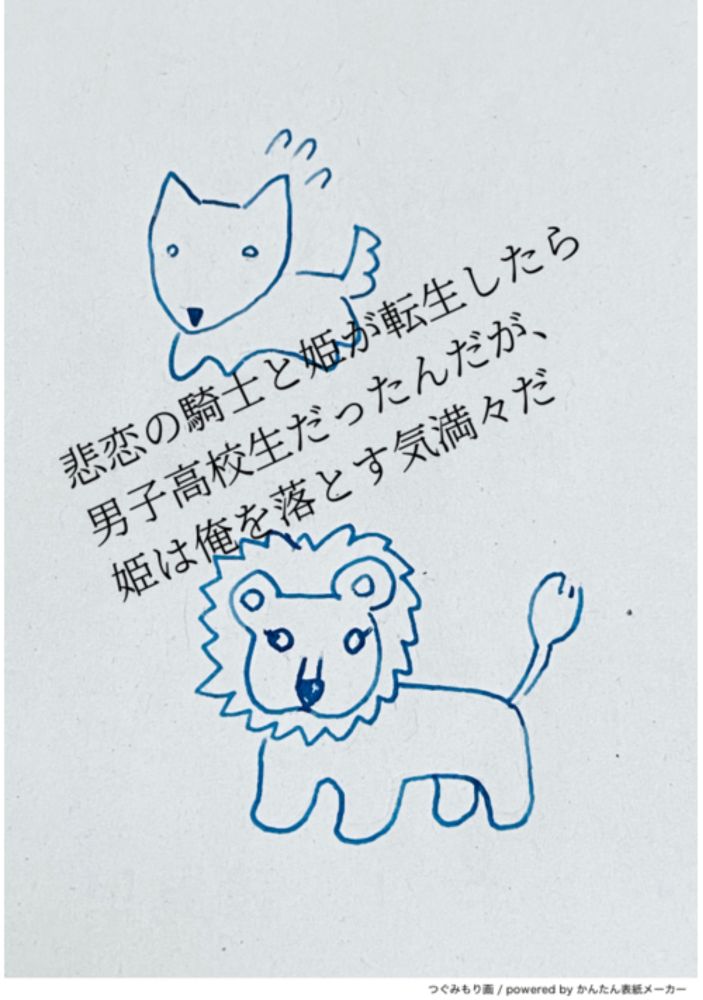 悲恋の騎士と姫が転生したら
男子高校生だったんだが、
姫は俺を落とす気満々だ
つぐみもり画 / powered by かんたん表紙メーカー